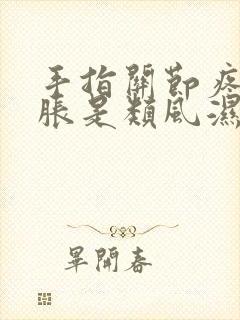 手指關節疼
脹是類風濕
畢開春